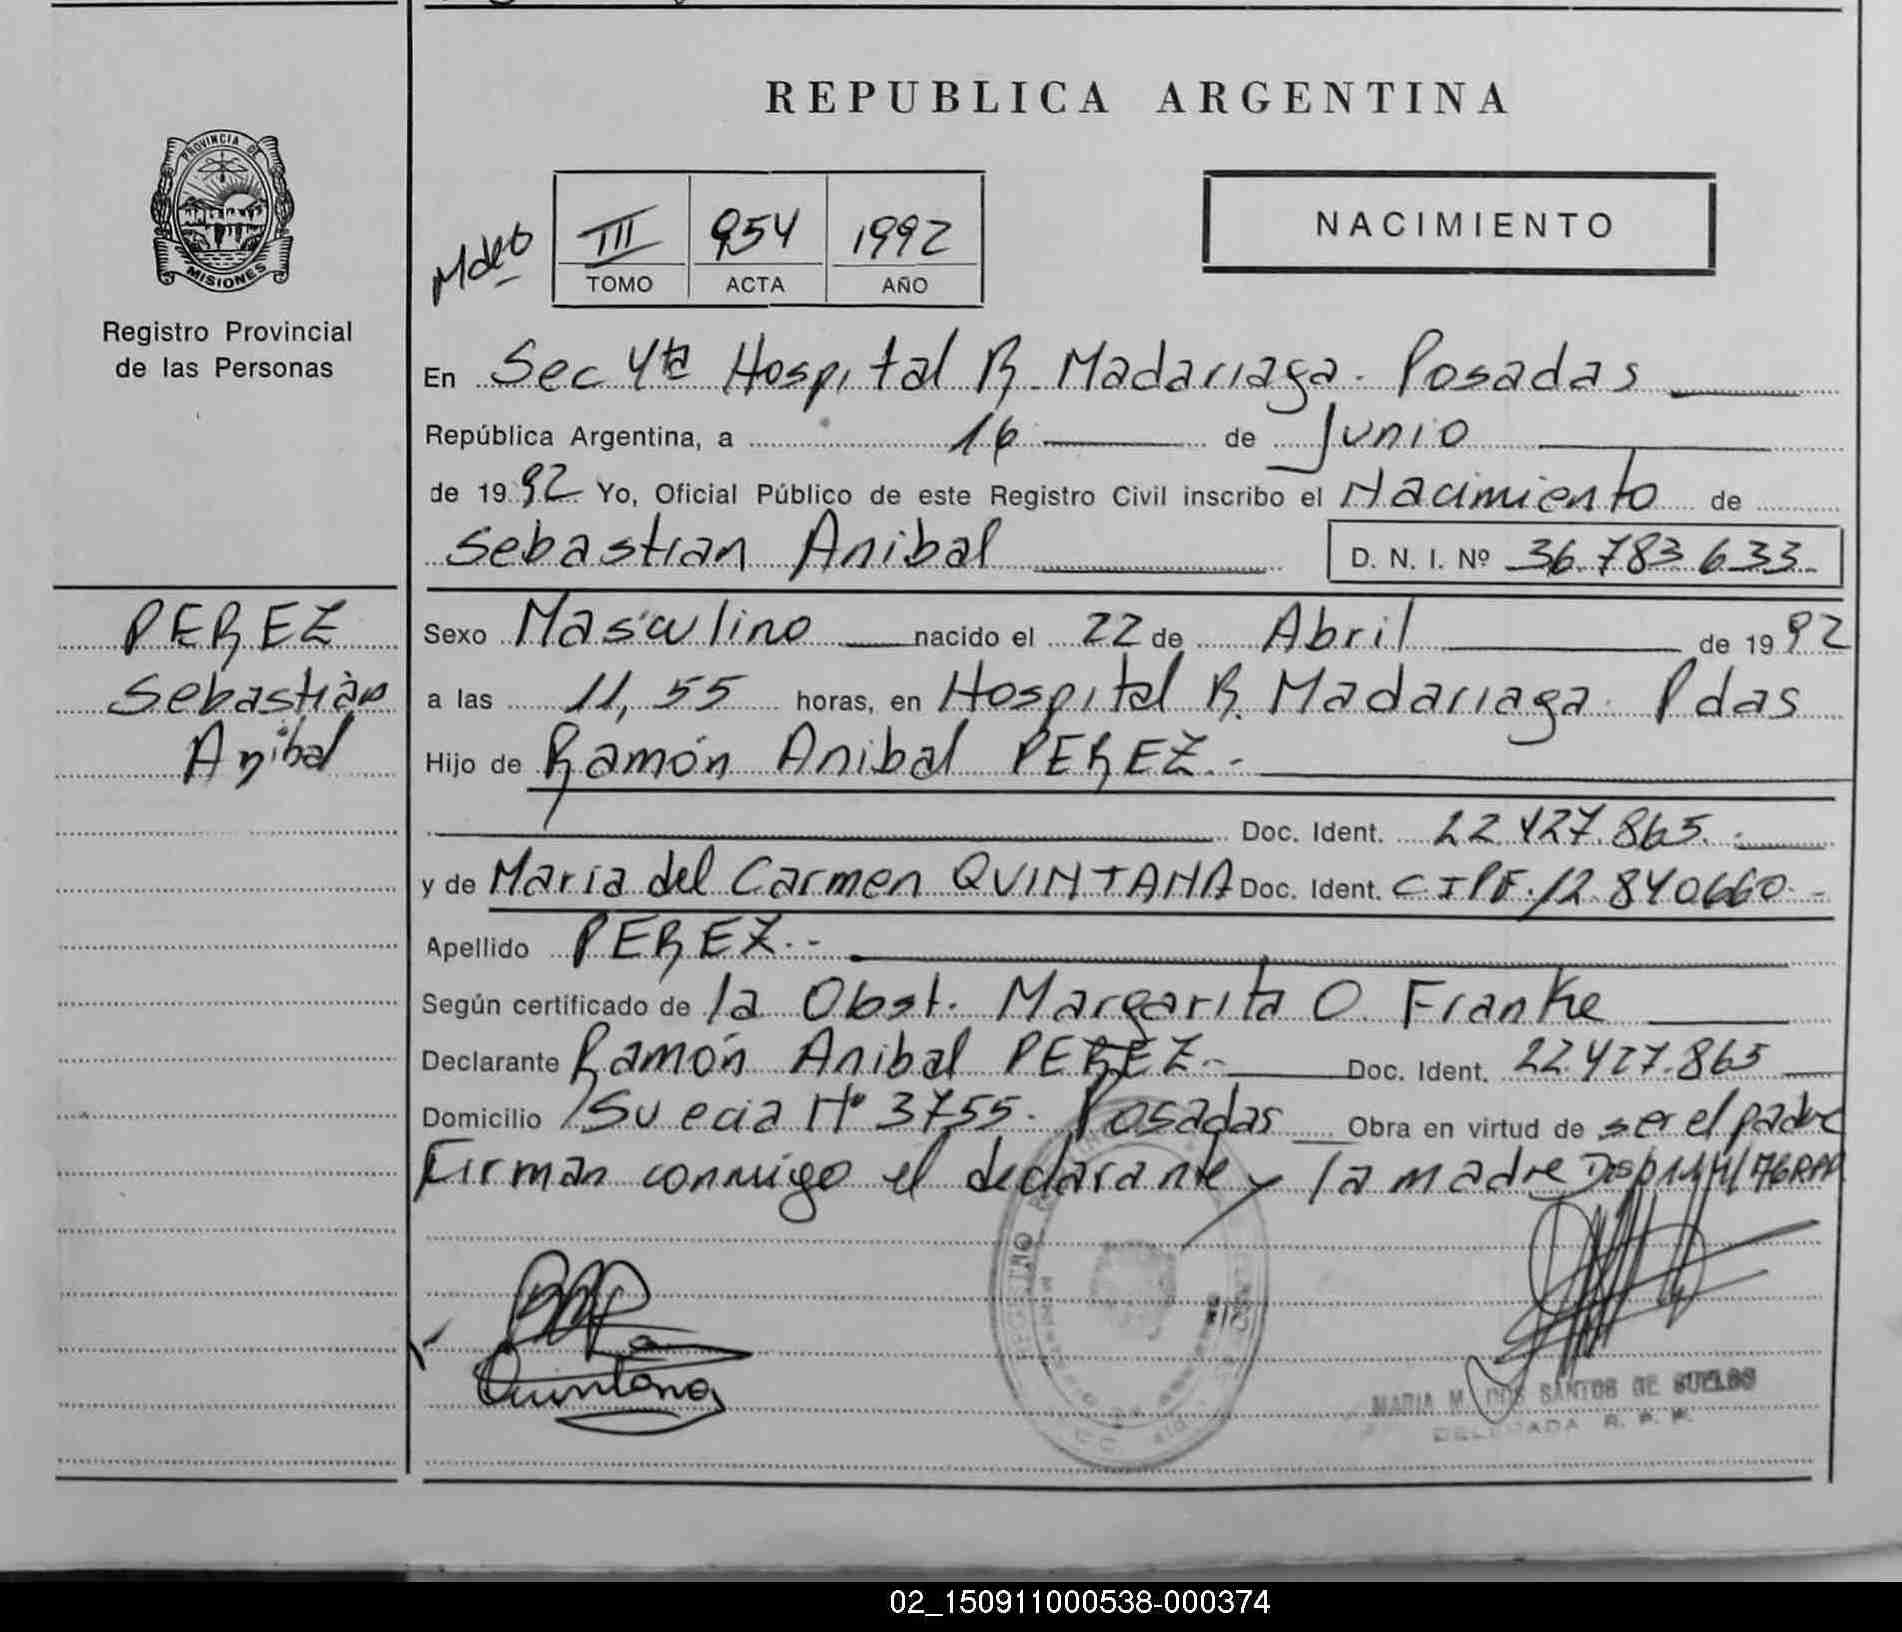 REPUBLICA ARGENTINA
PROVINCIA DE
MISIONES
Registro Provincial
de las Personas
NACIMIENTO
III 954 1992
TOMO ACTA AÑO
En Sec 4ta Hospital R. Madariaga. Posadas
República Argentina, a 16 de Junio
de 1992 Yo, Oficial Público de este Registro Civil inscribo el Nacimiento de
Sebastian Anibal D. N. I. Nº 36.783.633
PEREZ
Sebastián
Anibal
Sexo Masculino nacido el 22 de Abril de 1992
a las 11,55 horas, en Hospital R. Madariaga. Pdas
Hijo de Ramón Anibal PEREZ.-
Doc. Ident. 22.427.865.-
y de Maria del Carmen QUINTANA Doc. Ident. CIPF. 12.840660.-
Apellido PEREZ.-
Según certificado de la Obst. Margarita O. Franke
Declarante Ramón Anibal PEREZ.- Doc. Ident. 22.427.865
Domicilio Suecia Nº 3755. Posadas Obra en virtud de ser el padre
Firman conmigo el declarante y la madre
Quintana
REGISTRO
MARIA M. DOS SANTOS DE SUELOS
DELEGADA R. P. P.
02_150911000538-000374